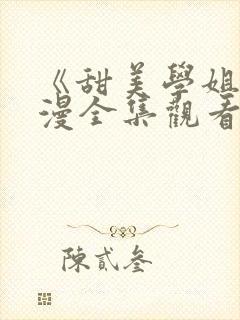 《甜美學姐
漫全集觀看
陳貳叁